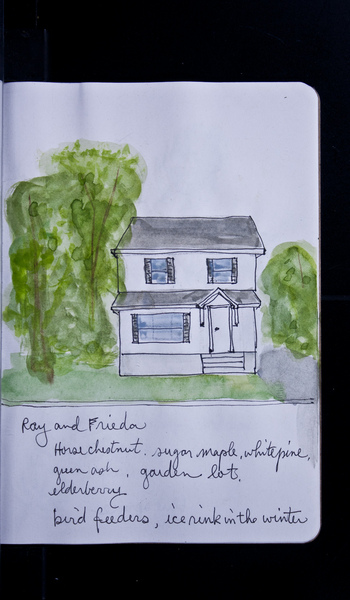 Ray and Frieda
Horse chestnut, sugar maple, white pine,
green ash, garden lot,
elderberry
bird feeders, ice rink in the winter